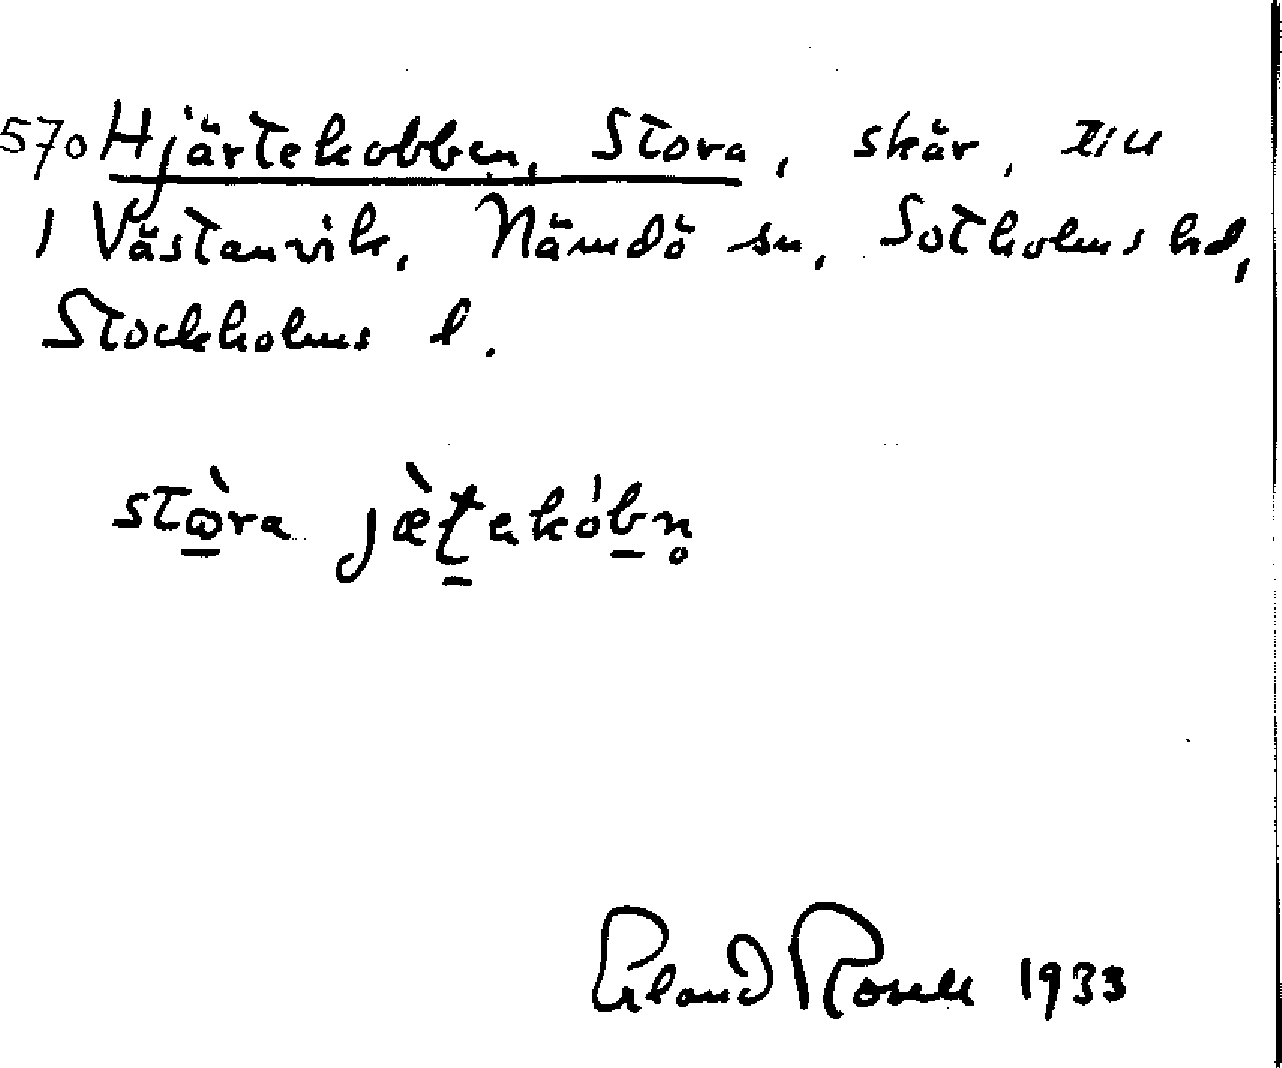 570 Hjärtekobben, Stora, skär, till
1 Västanvik, Nämdö sn, Sotholms hd,
Stockholms l.
stɷ̀ra jæ̀ʈekóbn̥
Erland Rosell 1933